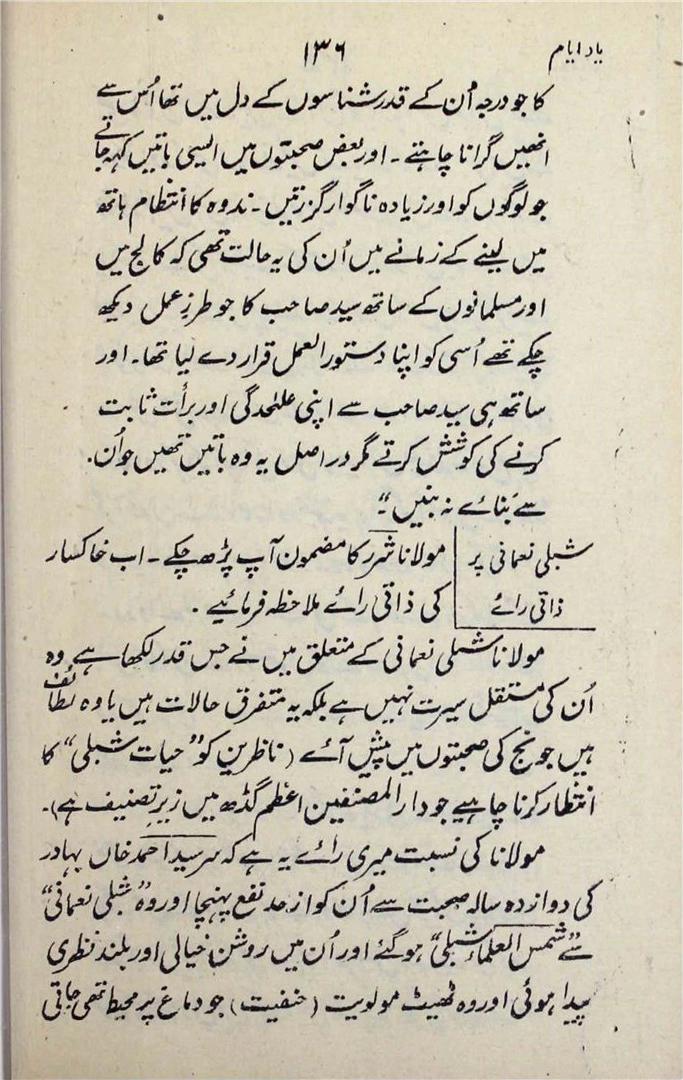 یاد ایام
۱۳۶
کا جو درجہ اُن کے قدر شناسوں کے دل میں تھا اُس سے
انھیں گرانا چاہتے ۔ اور بعض صحبتوں میں ایسی باتیں کہہ جاتے
جو لوگوں کو اور زیادہ ناگوار گزرتیں ۔ ندوہ کا انتظام ہاتھ
میں لینے کے زمانے میں اُن کی یہ حالت تھی کہ کالج میں
اور مسلمانوں کے ساتھ سید صاحب کا جو طرزِ عمل دیکھ
چکے تھے اُسی کو اپنا دستور العمل قرار دے لیا تھا ۔ اور
ساتھ ہی سید صاحب سے اپنی علٰحدگی اور برأت ثابت
کرنے کی کوشش کرتے مگر در اصل یہ وہ باتیں تھیں جو اُن
سے بنائے نہ بنیں“
شبلی نعمانی پر
ذاتی رائے
مولانا شرر کا مضمون آپ پڑھ چکے ۔ اب خاکسار
کی ذاتی رائے ملاحظہ فرمائیے ۔
مولانا شبلی نعمانی کے متعلق میں نے جس قدر لکھا ہے وہ
اُن کی مستقل سیرت نہیں ہے بلکہ یہ متفرق حالات ہیں یا وہ لطائف
ہیں جو نج کی صحبتوں میں پیش آئے (ناظرین کو ”حیات شبلی“ کا
انتظار کرنا چاہیے جو دار المصنفین اعظم گڈھ میں زیرِ تصنیف ہے)۔
مولانا کی نسبت میری رائے یہ ہے کہ سر سید احمد خاں بہادر
کی دوازدہ سالہ صحبت سے اُن کو از حد نفع پہنچا اور وہ ”شبلی نعمانی“
سے ”شمس العلماء شبلی“ ہو گئے اور اُن میں روشن خیالی اور بلند نظری
پیدا ہوئی اور وہ ٹھیٹ مولویت (حنفیت) جو دماغ پر محیط تھی جاتی